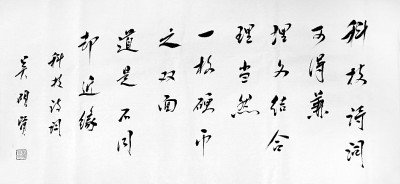 科技诗词
可得兼
理文结合
理当然
一枚硬币
之双面
道是不同
却近缘
科技诗词
吴明贤